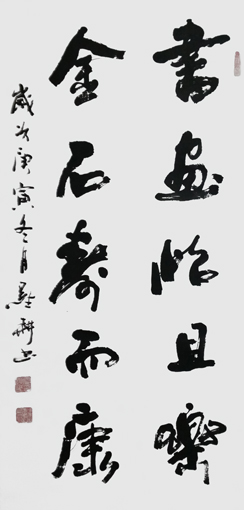 書画怡且樂
金石壽而康
歲次庚寅冬月